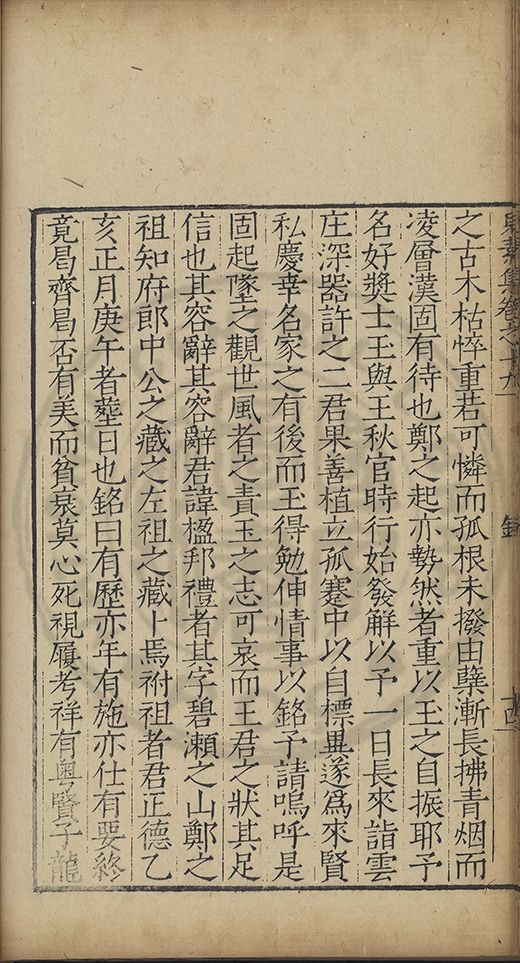 卷之十九
之古木枯悴重若可憐而孤根未撥由蘖漸長拂青烟而
凌層漢固有待也鄭之起亦勢然者重以玉之自振耶予
名好獎士玉與王秋官時行始發解以予一日長來詣雲
庄深器許之二君果善植立孤蹇中以自標異遂爲來賢
私慶幸名家之有後而玉得勉伸情事以銘予請嗚呼是
固起墜之觀世風者之責玉之志可哀而王君之狀其足
信也其容辭其容辭君諱楹邦禮者其字碧瀨之山鄭之
祖知府郎中公之藏之左祖之藏卜焉祔祖者君正德乙
亥正月庚午者塟日也銘曰有歷亦年有施亦仕有要終
竟曷齊曷否有美而貧哀莫心死視履考祥有粵賢子龍